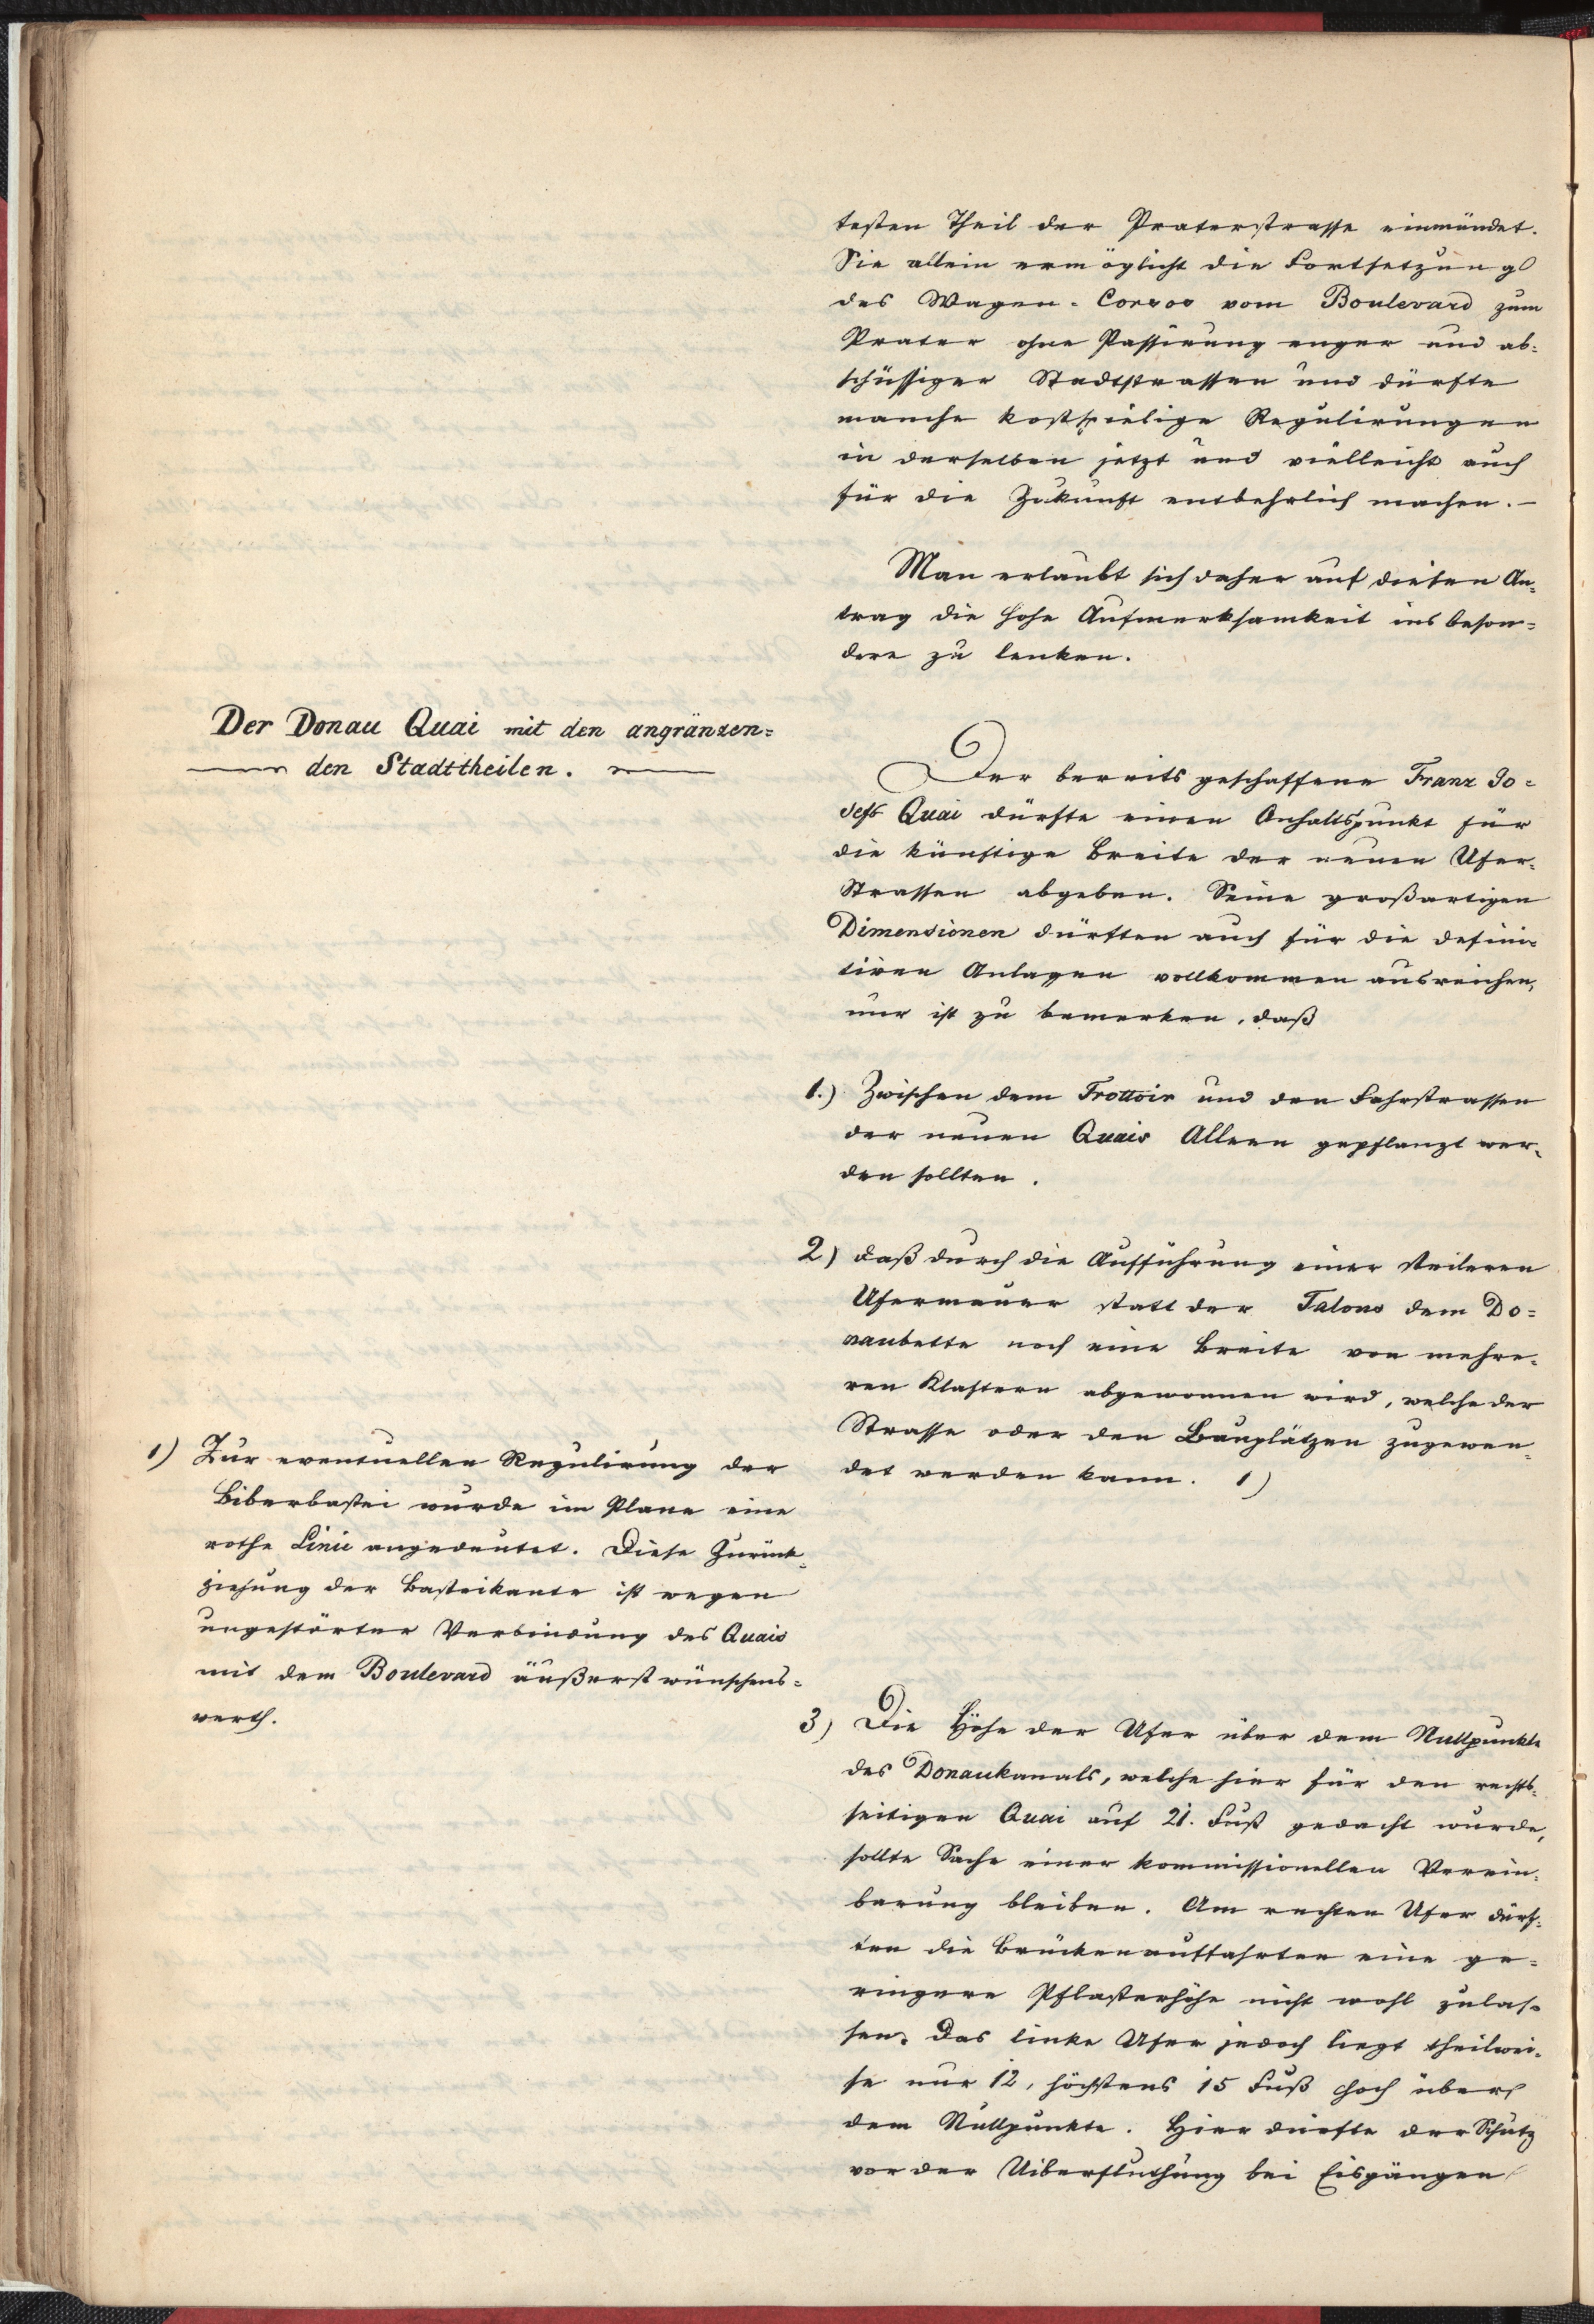 testen Theil der Praterstrasse einmündet.
Sie allein ermöglicht die Fortsetzung
des Wagen-Corsos vom Boulevard zum
Prater ohne Passirung enger und ab-
schüssiger Stadtstrassen und dürfte
manche kostspielige Regulirungen
in derselben jetzt und vielleicht auch
für die Zukunft entbehrlich machen.–
Man erlaubt sich daher auf diesen An-
trag die hohe Aufmerksamkeit ins beson-
dere zu lenken.
Der Donau Quai mit den angränzen=
den Stadttheilen.
Der bereits geschaffene Franz Jo=
sefs Quai dürfte einen Anhaltspunkt für
die künftige Breite der neuen Ufer-
Strassen abgeben. Seine großartigen
Dimensionen dürften auch für die defini-
tiven Anlagen vollkommen ausreichen,
nur ist zu bemerken, daß
1.) Zwischen dem Trottoir und den Fahrstrassen
der neuen Quais Alleen gepflanzt wer-
den sollten.
2) daß durch die Aufführung einer steileren
Ufermauer statt der Talons dem Do=
naubette noch eine Breite von mehre-
ren Klaftern abgewonnen wird, welche der
Strasse oder den Bauplätzen zugewen-
det werden kann. 1)
1) Zur eventuellen Regulirung der
Biberbastei wurde im Plane eine
rothe Linie angedeutet. Diese Zurück-
ziehung der Basteikante ist wegen
ungestörter Verbindung des Quais
mit dem Boulevard äußerst wünschens=
werth.
3) Die Höhe der Ufer über dem Nullpunkte
des Donaukanals, welche hier für den rechts-
seitigen Quai auf 21. Fuß gedacht wurde,
sollte Sache einer kommissionellen Verein-
barung bleiben. Am rechten Ufer dürf-
ten die Brückenauffahrten eine ge-
ringere Pflasterhöhe nicht wohl zulas-
sen. Das linke Ufer jedoch liegt theilwei-
se nur 12, höchstens 15 Fuß hoch über
dem Nullpunkte. Hier dürfte der Schutz
vor der Uiberfluthung bei Eisgängen